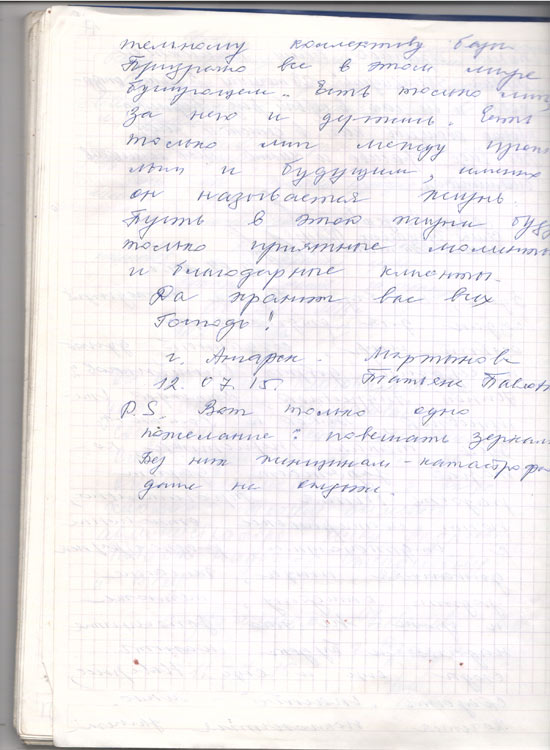 тельному коллективу базы.
Призрачно все в этом мире
бушующем. Есть только миг
За него и держись. Есть
только миг между прош
лым и будущим, именно
он называется жизнь.
Пусть в этой жизни буду
только приятные моменты
и благодарные клиенты.
Да хранит вас всех
Господь!
г. Ангарск. Мартынова
12.07.15. Татьяна Павлов
P.S. Вот только одно
пожелание: повешать зеркал
Без них женщинам - катастрофа
даже на отдыхе.